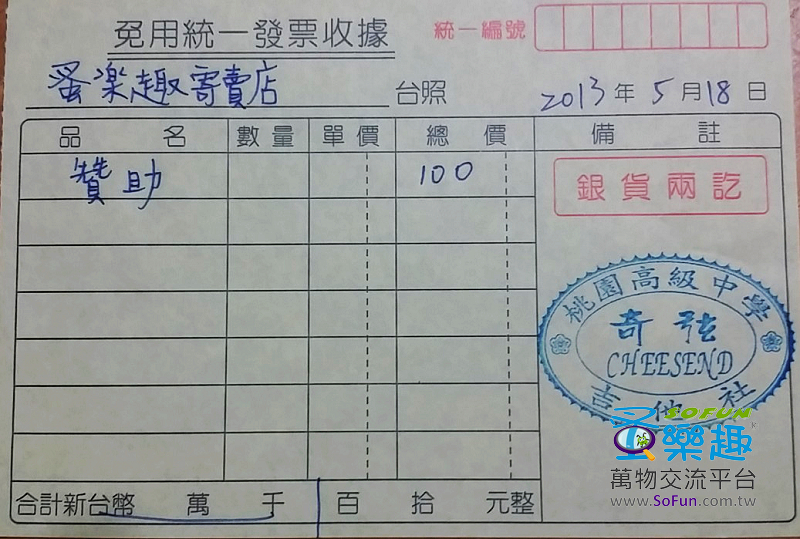 免用統一發票收據
統一編號
蚤樂趣寄賣店 台照
2013年5月18日
品名 數量 單價 總價 備註
贊助 100
銀貨兩訖
桃園高級中學
奇弦
CHEESEND
吉他社
合計新台幣 萬 千 百 拾 元整
SOFUN
蚤樂趣
萬物交流平台
www.SoFun.com.tw